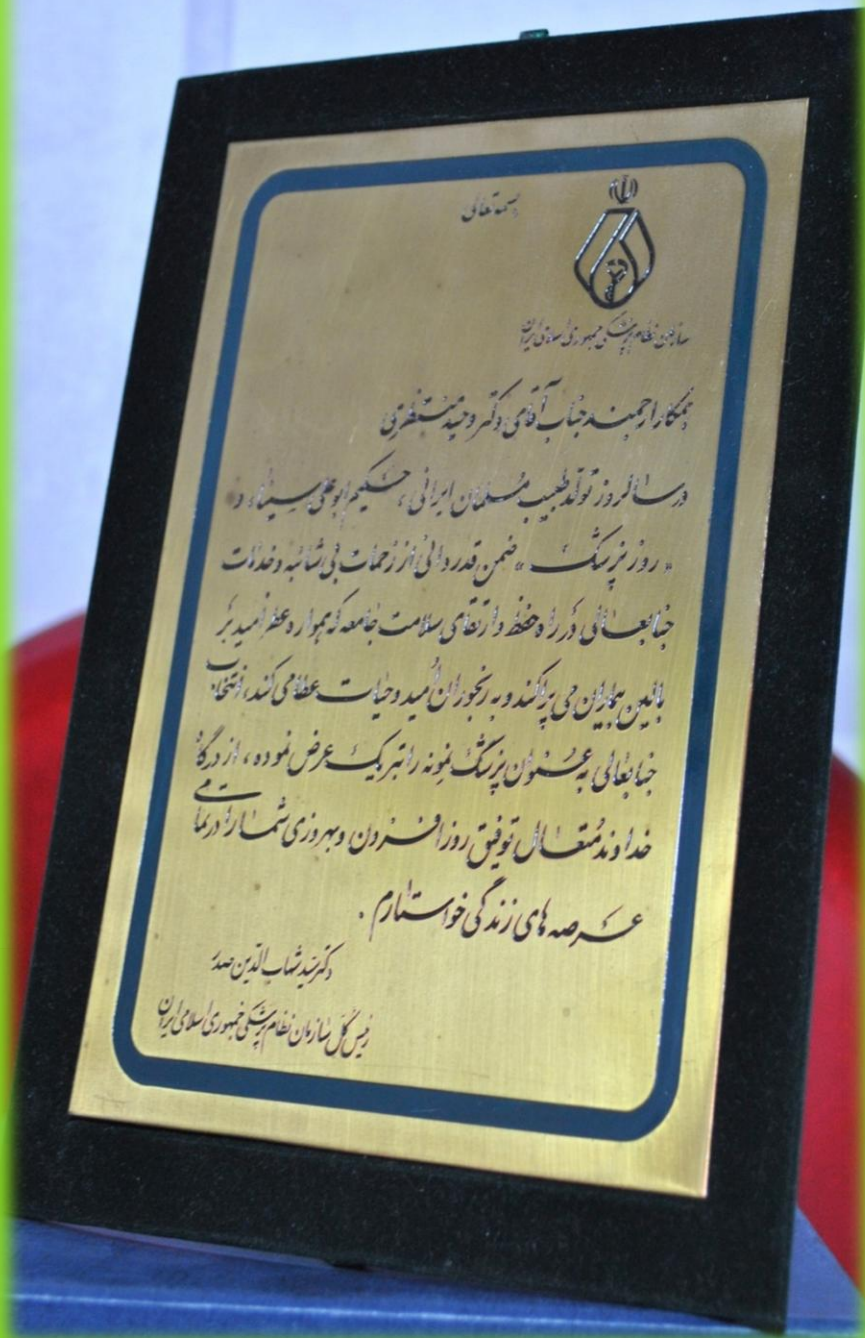 بسمه تعالی
سازمان نظام پزشکی جمهوری اسلامی ایران
همکار ارجمند جناب آقای دکتر وحید منتظری
در سالروز تولد طبیب مسلمان ایرانی ، حکیم ابوعلی سینا، و
« روز پزشک » ضمن قدردانی از زحمات بی شائبه و خدمات
جنابعالی در راه حفظ و ارتقای سلامت جامعه که همواره عطر امید بر
بالین بیماران می پراکند و به رنجوران اُمید و حیات عطا می کند، انتخاب
جنابعالی به عنوان پزشک نمونه را تبریک عرض نموده ، از درگاه
خداوند مُتعال توفیق روزافزون و بهروزی شما را در تمامی
عرصه های زندگی خواستارم .
دکتر سید شهاب الدین صدر
رئیس کل سازمان نظام پزشکی جمهوری اسلامی ایران